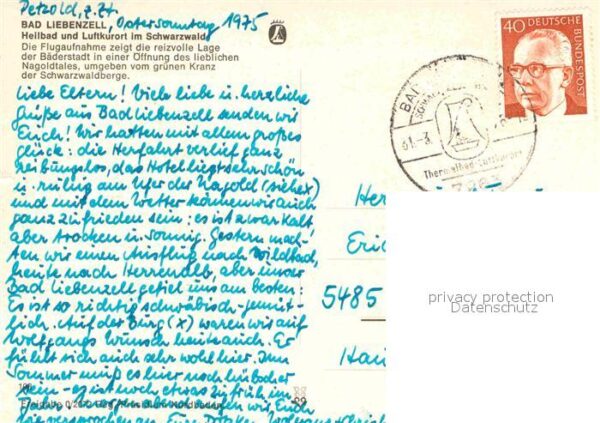 Petzold, z. Zt.
BAD LIEBENZELL, Ostersonntag 1975
Heilbad und Luftkurort im Schwarzwald
Die Flugaufnahme zeigt die reizvolle Lage
der Bäderstadt in einer Öffnung des lieblichen
Nagoldtales, umgeben vom grünen Kranz
der Schwarzwaldberge.
Liebe Eltern! Viele liebe u. herzliche
Grüße aus Bad Liebenzell senden wir
Euch! Wir hatten mit allem großes
Glück: die Herfahrt verlief ganz
reibungslos, das Hotel liegt sehr schön
u. ruhig am Ufer der Nagold (siehe x)
und mit dem Wetter können wir auch
ganz zufrieden sein: es ist zwar kalt
aber trocken u. sonnig. Gestern mach-
ten wir einen Ausflug nach Wildbad,
heute nach Herrenalb, aber unser
Bad Liebenzell gefiel uns am besten:
Es ist so richtig schwäbisch-gemüt-
lich. Auf der Burg (x) waren wir auf
Wolfgangs Wunsch heute auch. Er
fühlt sich auch sehr wohl hier. Im
Sommer muß es hier noch hübscher
sein - es ist noch etwas zu früh im
wir Euch
wie versprochen an. Eure
40
DEUTSCHE
BUNDESPOST
BAD
31.-3.
Thermalbad Luftkurort
Her
Eric
5485
Hau
privacy protection
Datenschutz